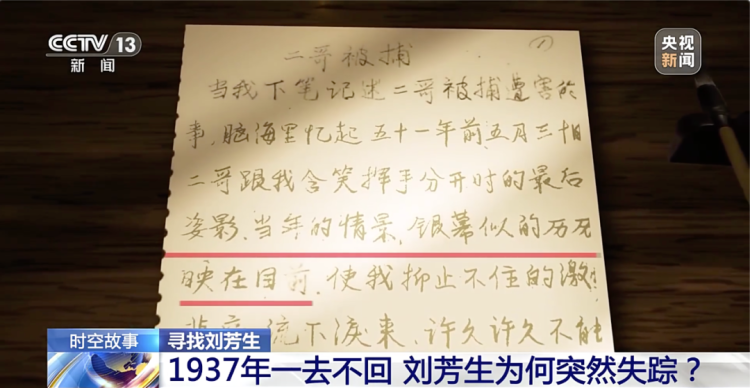 CCTV 13
新闻
央视
新闻
二哥被捕
①
当我下笔记述二哥被捕遭害的
事，脑海里忆起五十一年前，五月三十日
二哥跟我含笑挥手分开时的最后
姿影，当年的情景，银幕似的历历
映在目前，使我抑止不住的激
流下泪来，许久许久不能
时空故事
寻找刘芳生
1937年一去不回 刘芳生为何突然失踪？